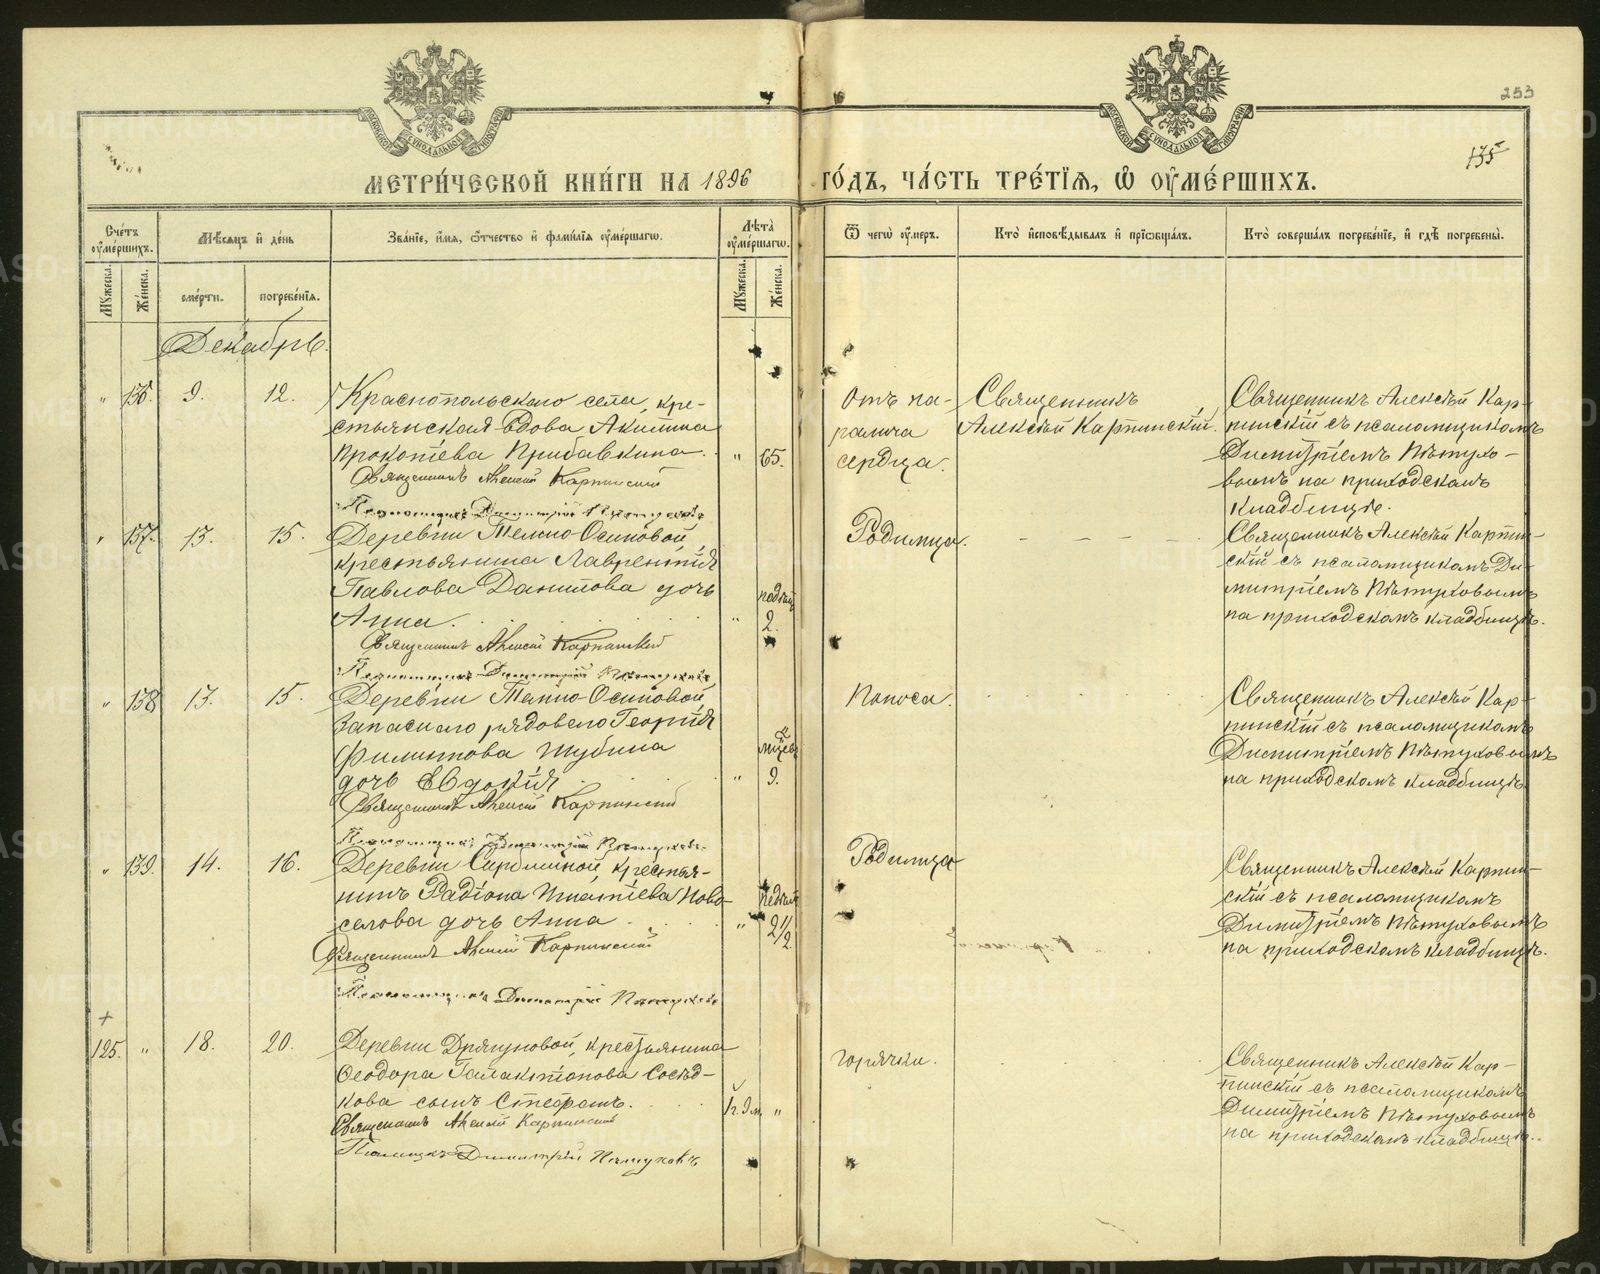 253
135
МЕТРИ́ЧЕСКОЙ КНИ́ГИ НА 1896 ГО́ДЪ, ЧА́СТЬ ТРЕ́ТІЯ, Ѡ ОУМЕ́РШИХЪ.
Сче́тъ оуме́ршихъ.
Мѣ́сяцъ и де́нь
Зва́нїе, и́мя, ѻ́тчество и фами́лїя оуме́ршагѡ.
Лѣта̀ оуме́ршагѡ.
Ѿ чегѡ̀ оу́меръ.
Кто̀ исповѣ́дывалъ и прїѡбща́лъ.
Кто̀ соверша́лъ погребе́нїе, и гдѣ̀ погребены̀.
Му́жеска.
Же́нска.
сме́рти.
погребе́нїя.
Му́жеска.
Же́нска.
Декабрь.
" 136. 9. 12.
Краснопольскаго села, кре-
стьянская вдова Акилина
Прокопіева Прибавкина. " 65.
Священникъ Алексій Карпинскій
Псаломщикъ Димитрій Пѣтуховъ
Отъ па-
ралича
сердца.
Священникъ
Алексѣй Карпинскій.
Священникъ Алексѣй Кар-
пинскій съ псаломщикомъ
Димитріемъ Пѣтухо-
вымъ на приходскомъ
кладбищѣ.
" 137. 13. 15.
Деревни Темно-Осиновой,
крестьянина Лаврентія
Павлова Данилова дочь
Анна. " 2.
Священникъ Алексій Карпинскій
Псаломщикъ Димитрій Пѣтуховъ
Родимца.
Священникъ Алексѣй Карпин-
скій съ псаломщикомъ Ди-
митріемъ Пѣтуховымъ
на приходскомъ кладбищѣ.
" 138 13. 15.
Деревни Темно-Осиновой,
запаснаго рядового Георгія
Филиппова Шубина
дочь Евдокія " 9.
Священникъ Алексій Карпинскій
Псаломщикъ Димитрій Пѣтуховъ
Поноса.
Священникъ Алексѣй Кар-
пинскій съ псаломщикомъ
Димитріемъ Пѣтуховымъ
на приходскомъ кладбищѣ.
" 139. 14. 16.
Деревни Сарминой, крестья-
нинъ Радіона Игнатіева Ново-
селова дочь Анна " недѣль 2 1/2
Священникъ Алексій Карпинскій
Псаломщикъ Димитрій Пѣтуховъ
Родимца
Священникъ Алексѣй Карпин-
скій съ псаломщикомъ
Димитріемъ Пѣтуховымъ
на приходскомъ кладбищѣ.
+
125. " 18. 20.
Деревни Дрягуновой, крестьянина
Ѳеодора Галактіонова Сосѣд-
кова сынъ Стефанъ. 1 г. 9 м. "
Священникъ Алексій Карпинскій
Псаломщикъ Димитрій Пѣтуховъ
горячки.
Священникъ Алексѣй Кар-
пинскій съ псаломщикомъ
Димитріемъ Пѣтуховымъ
на приходскомъ кладбищѣ.
METRIKI.GASO-URAL.RU